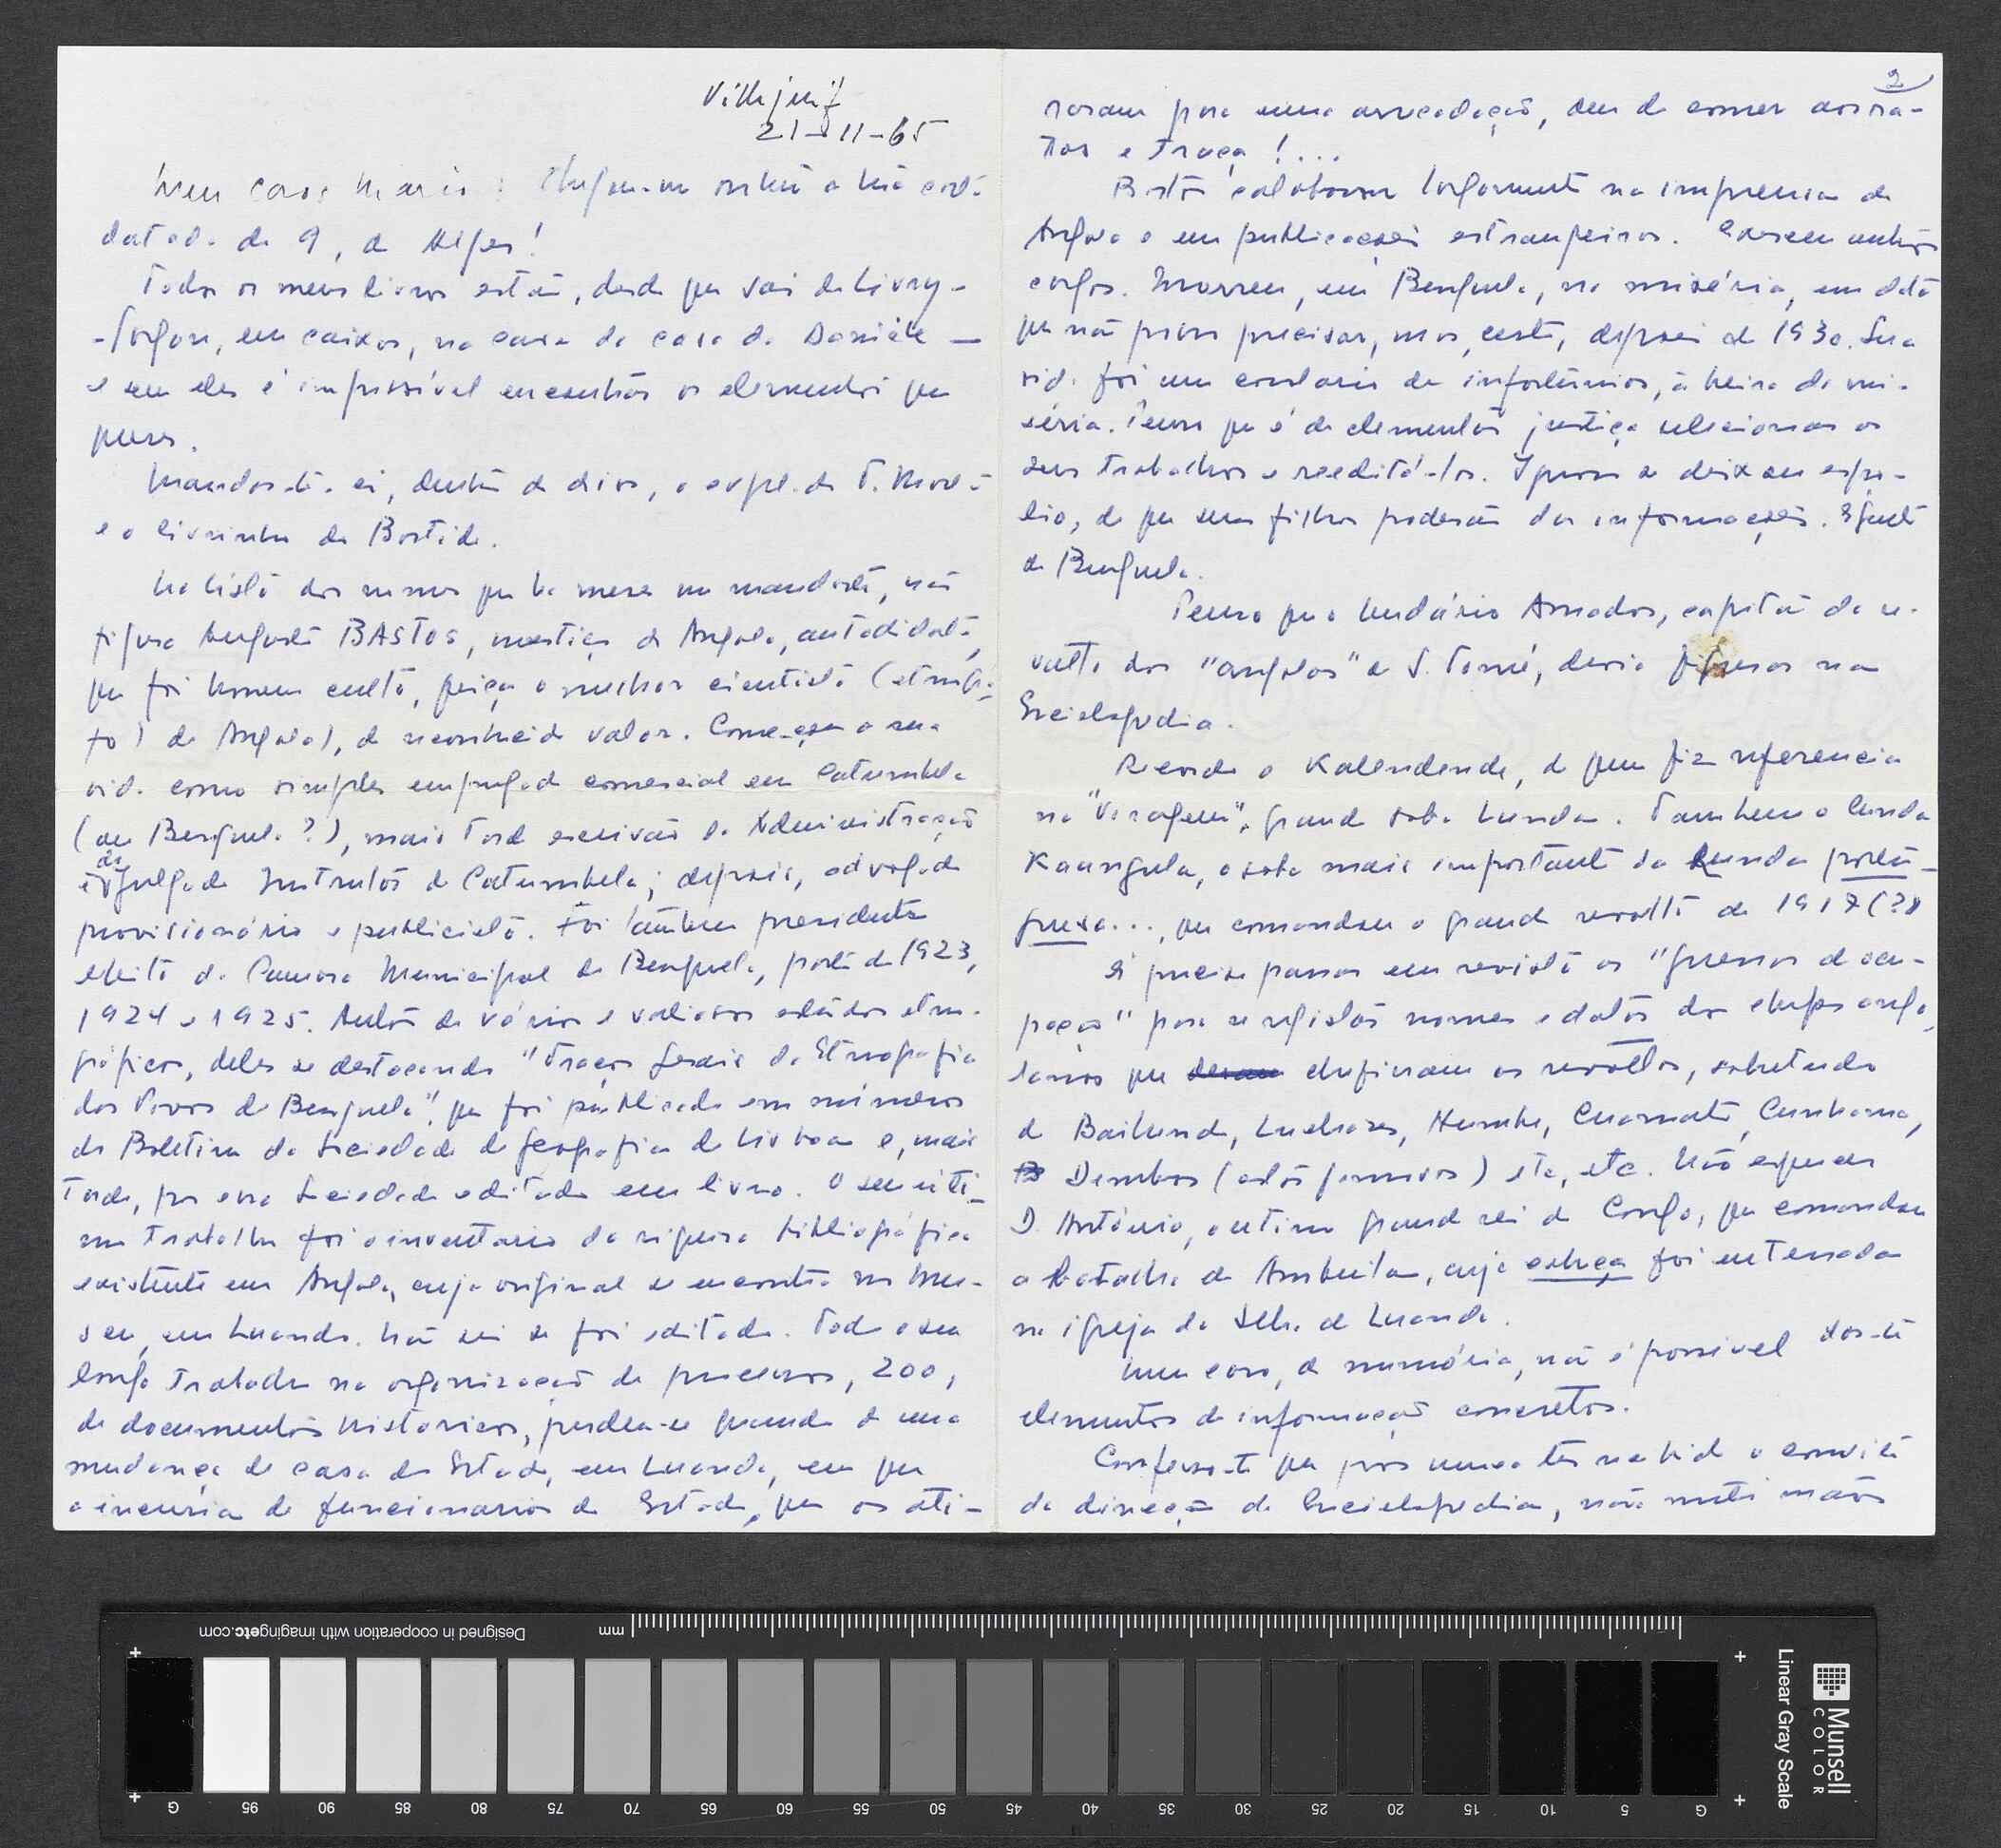 Villejuif
21-11-65
Meu caro Mario: Chegou-me ontem a tua carta
datada de 9, de Alger!
Todos os meus livros estão, desde que saí de Livry-
-Gargan, em caixas, na cave da casa da Danièle —
e sem eles é impossível encontrar os elementos que
queres.
Mandar-te-ei, dentro de dias, o expl. do T.
e o livrinho da Bastide.
Na lista dos nomes que há meses me mandaste, não
figura Augusto BASTOS, mestiço de Angola, autodidata,
que foi homem culto, quiçá o melhor cientista (etnógra-
fo) de Angola), de reconhecido valor. Começou a sua
vida como simples empregado comercial em Catumbela
(ou Benguela?), mais tarde escrivão da Administração
e do Julgado Instrutor de Catumbela; depois, advogado
provisionário e publicista. Foi também presidente
eleito da Camara Municipal de Benguela, parte de 1923,
1924 e 1925. Autor de vários e valiosos estudos etno-
gráficos, deles se destacando "Traços Gerais da Etnografia
dos Povos de Benguela", que foi publicado em números
do Boletim da Sociedade de Geografia de Lisboa e, mais
tarde, por essa Sociedade editado em livro. O seu últi-
mo trabalho foi o inventario da riqueza bibliográfica
existente em Angola, cujo original se encontra no Mu-
seu, em Luanda. Não sei se foi editado. Todo o seu
longo trabalho na organização de processos, 200,
de documentos historicos, perdeu-se quando de uma
mudança de casa do Estado, em Luanda, em que
a incuria de funcionarios do Estado, que os ati-
2
raram para uma arrecadação, deu de comer aos ra-
tos e traça!...
Bastos colaborou largamente na imprensa de
Angola e em publicações estrangeiras. Exerceu outros
cargos. Morreu, em Benguela, na miséria, em data
que não posso precisar, mas, certo, depois de 1930. Sua
vida foi um de infortúnios, à beira da mi-
séria. Penso que é de elementar justiça selecionar os
seus trabalhos e reeditá-los. Ignoro se deixou espó-
lio, de que seus filhos poderão dar informações. É gente
de Benguela.
Penso que o Amador, capitão da re-
volta dos "angolas" de S. Tomé, devia figurar na
Enciclopedia.
Recordo o Kalendende, de quem fiz referencia
na "Viragem", grande soba Lunda. Tambem o Lunda
Kaungula, o soba mais importante da Lunda portu-
guesa..., que comandou a grande revolta de 1917(?)
É preciso passar em revista as "guerras de ocu-
pação" para se registar nomes e datas dos chefes ango-
lanos que chefiaram as revoltas, sobretudo
de Bailundo, Luchazes, Humbe, Cuamato, Cunhama,
Dembos (estás famosos) etc, etc. Não esquecer
D. António, o ultimo grande rei do Congo, que comandou
a batalha de Ambuila, cuja cabeça foi enterrada
na igreja da de Luanda.
Meu caro, de memória, não é possivel dar-te
elementos de informação concretos.
Confesso-te que, por nunca ter recebido o convite
da direcção da Enciclopedia, não meti mãos
Designed in cooperation with imagingetc.com
mm
G 95 90 85 80 75 70 65 60 55 50 45 40 35 30 25 20 15 10 5 G
Munsell
COLOR
Linear Gray Scale